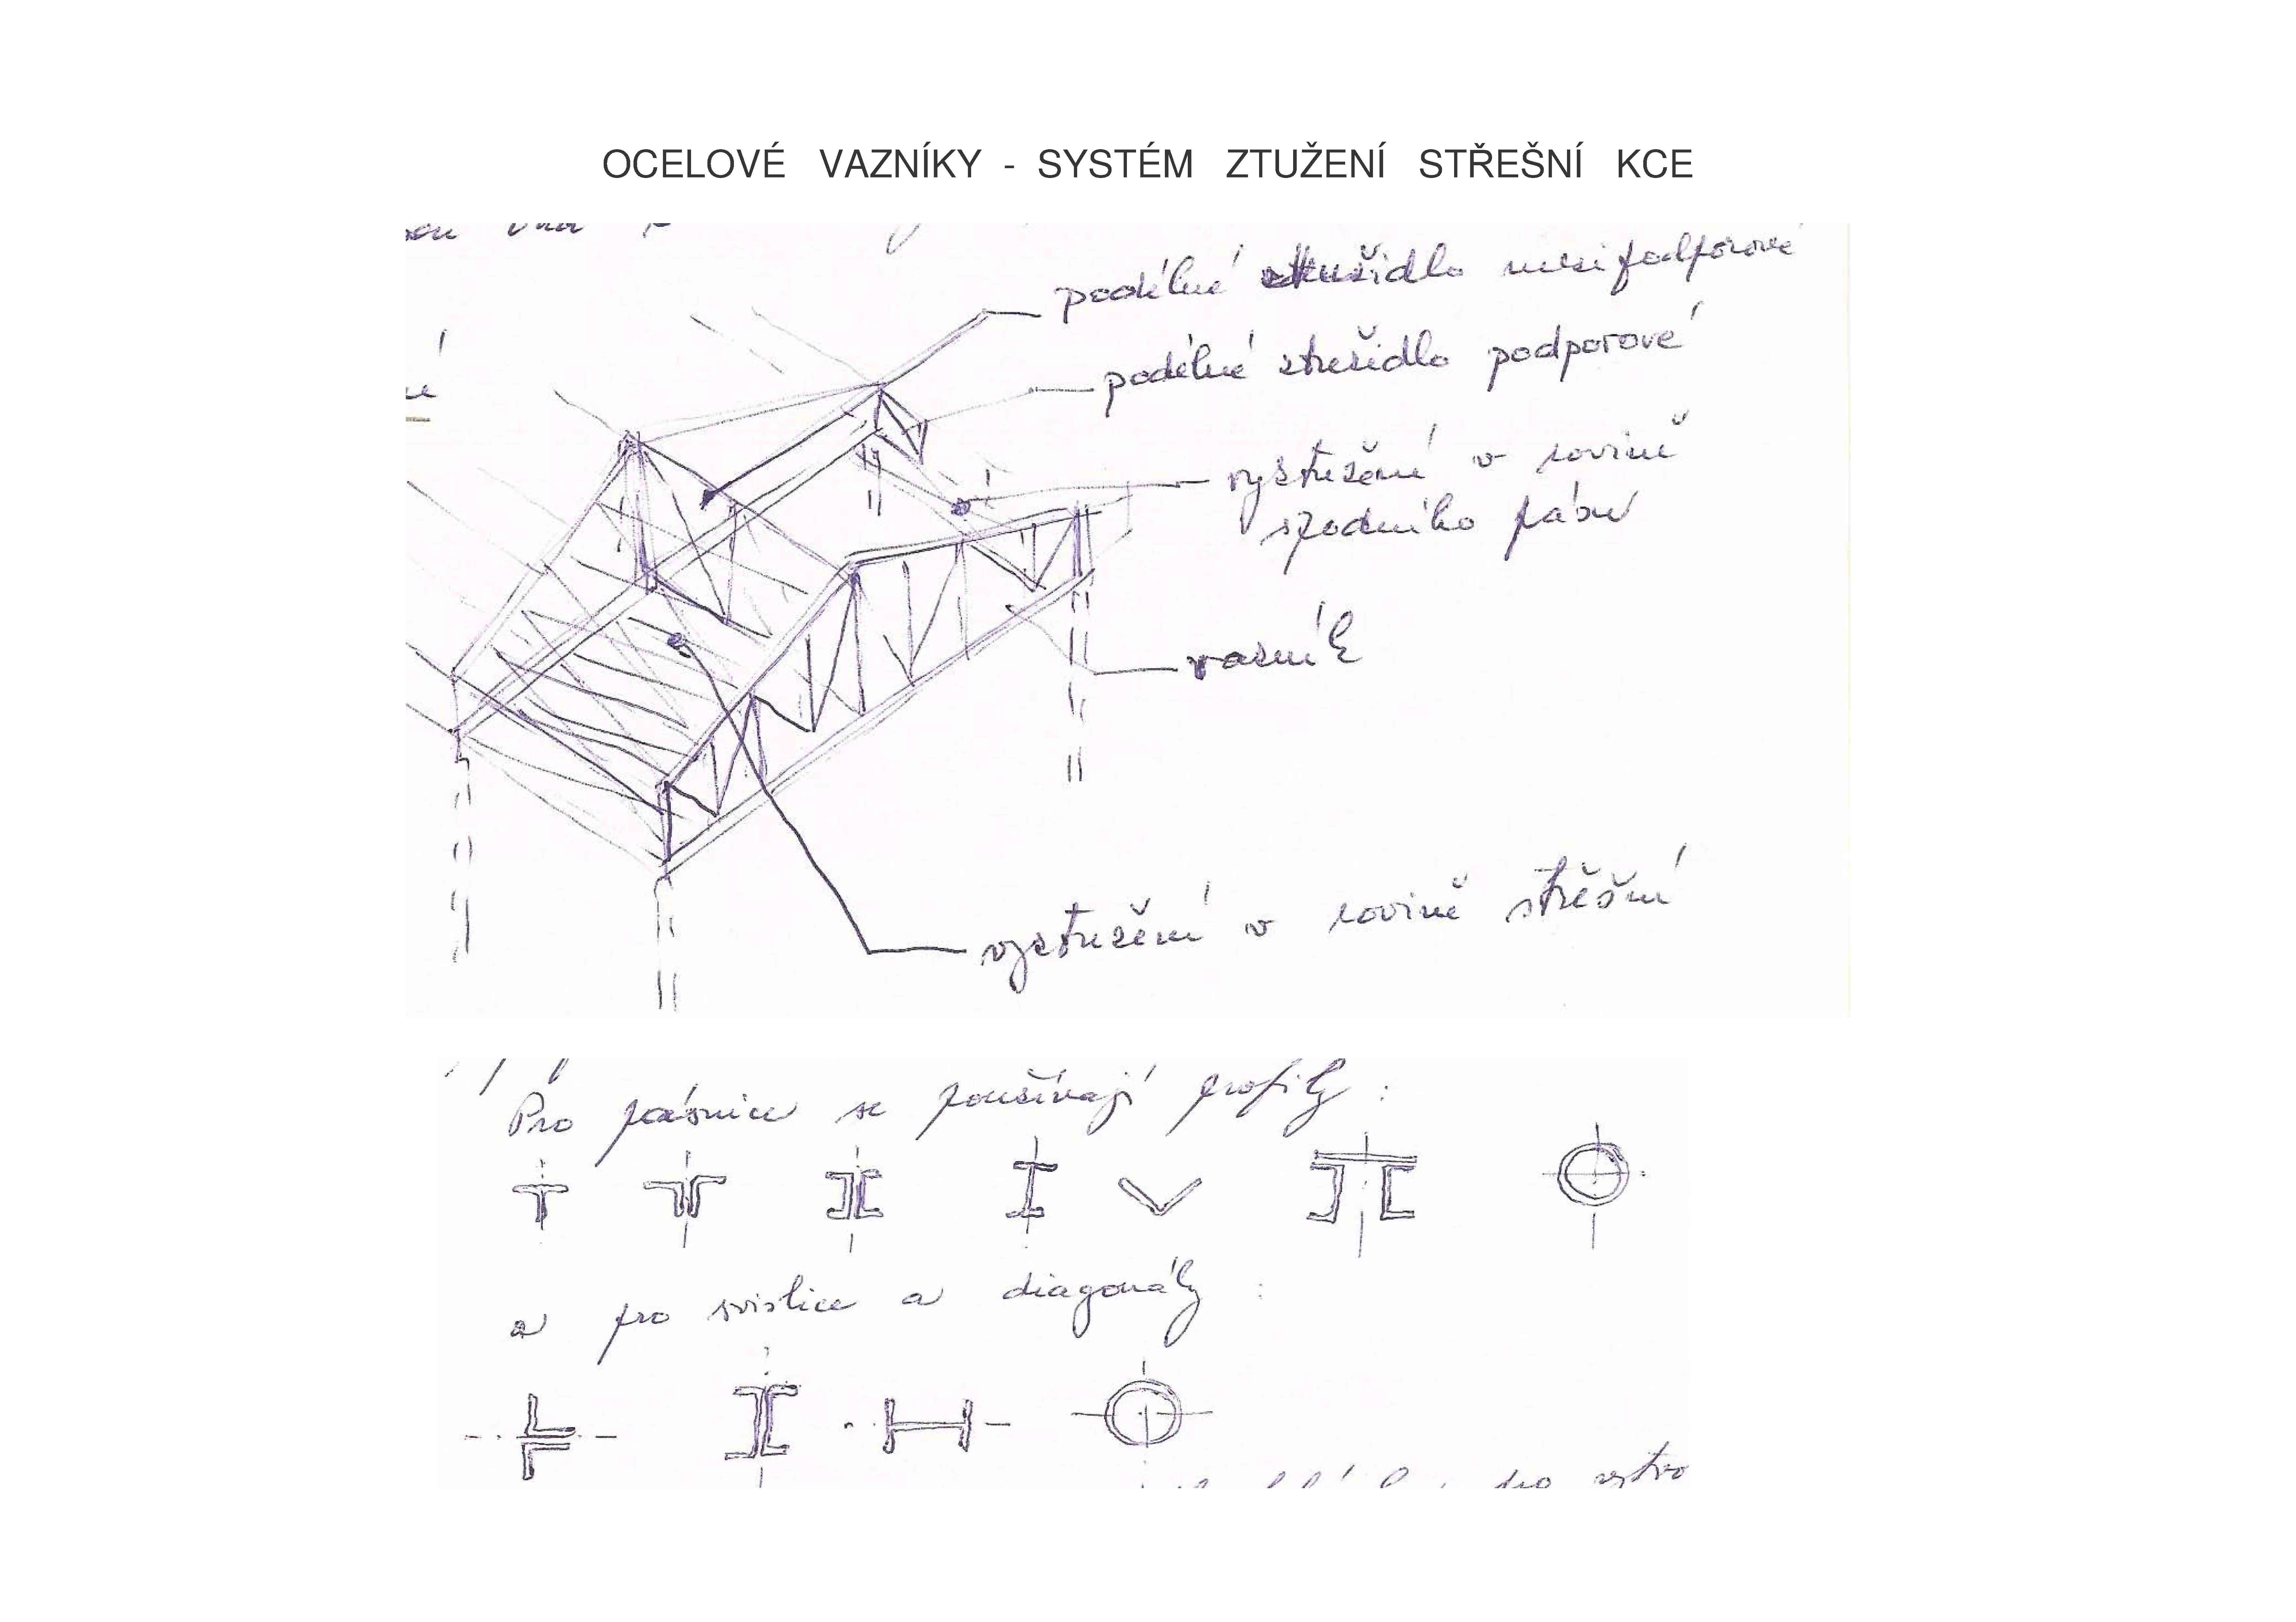 OCELOVÉ VAZNÍKY - SYSTÉM ZTUŽENÍ STŘEŠNÍ KCE
podélné ztužidlo mezipodporové
podélné ztužidlo podporové
vyztužení v rovině
spodního pásu
vazník
vyztužení v rovině střešní
Pro pásnice se používají profily :
a pro svislice a diagonály :